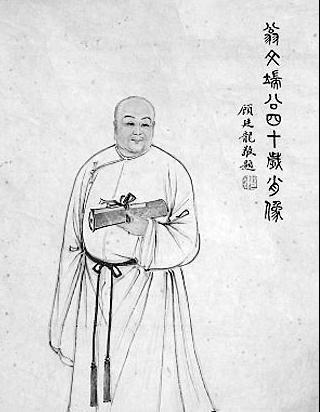 翁文端公四十歲肖像
顧廷龍敬題